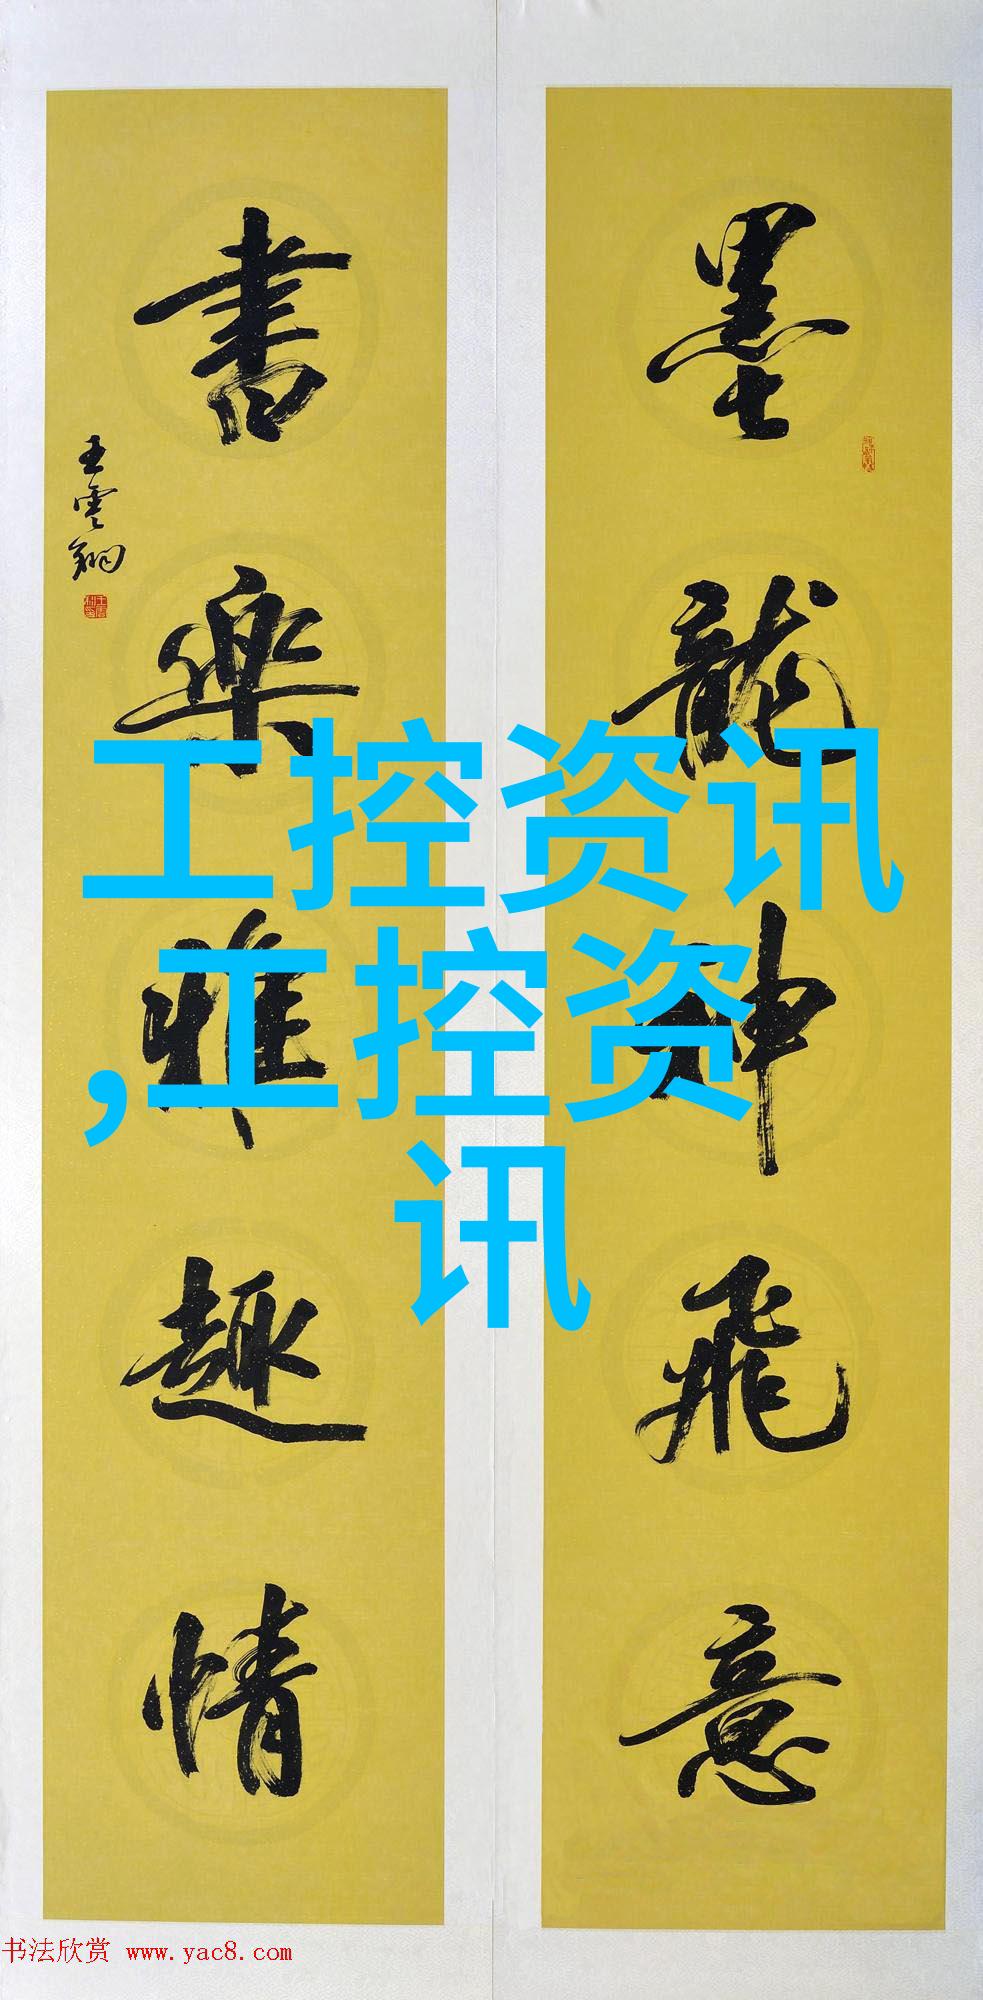 墨龍神飛意
書樂雅趣情
王雲翔
工控资讯
,工控资
讯
书法欣赏 www.yac8.com